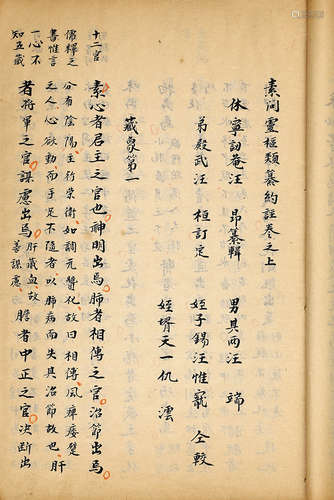 素问靈樞類纂約註卷之上
休寧訒菴汪 昂纂輯 男其两汪 端
弟殿武汪 桓訂定 姪子錫汪惟寵 仝較
姪壻天一仇 澐
藏象第一
素心者君主之官也神明出焉肺者相傅之官治節出焉
分有陰陽主行荣衛如調元賛化故曰相傅風痺痿躄
之人心欲動而足不随者以肺病而失其治節故也肝
者将軍之官謀慮出焉肝藏血故善謀慮膽者中正之官决断出
十二官
儒釋之
書惟言
一心不
知五藏